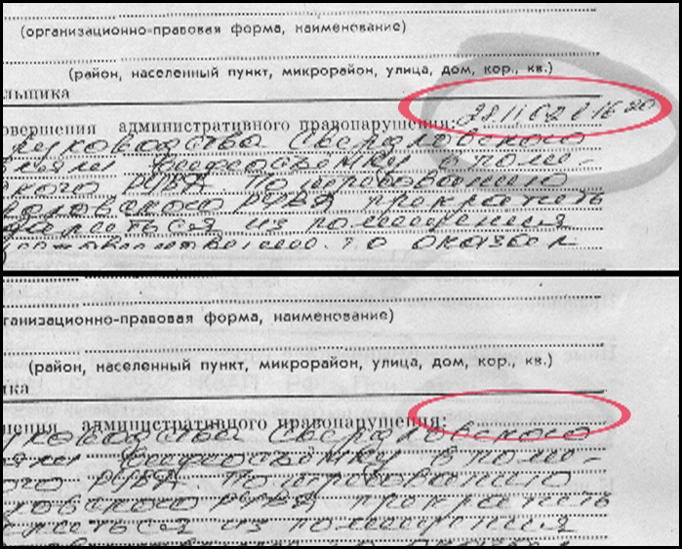 (организационно-правовая форма, наименование)
(район, населенный пункт, микрорайон, улица, дом, кор., кв.)
льщика
овершения административного правонарушения: 28.11.02 в 16 20
руководства Свердловского
видеосъемку в поме-
ского РУВД. По требованию
ловского РУВД прекратить
из помещения
оказал
ганизационно-правовая форма, наименование)
(район, населенный пункт, микрорайон, улица, дом, кор., кв.)
ка
шения административного правонарушения:
уководства Свердловского
видеосъемку в поме-
ого РУВД. По требованию
овского РУВД прекратить
из помещения